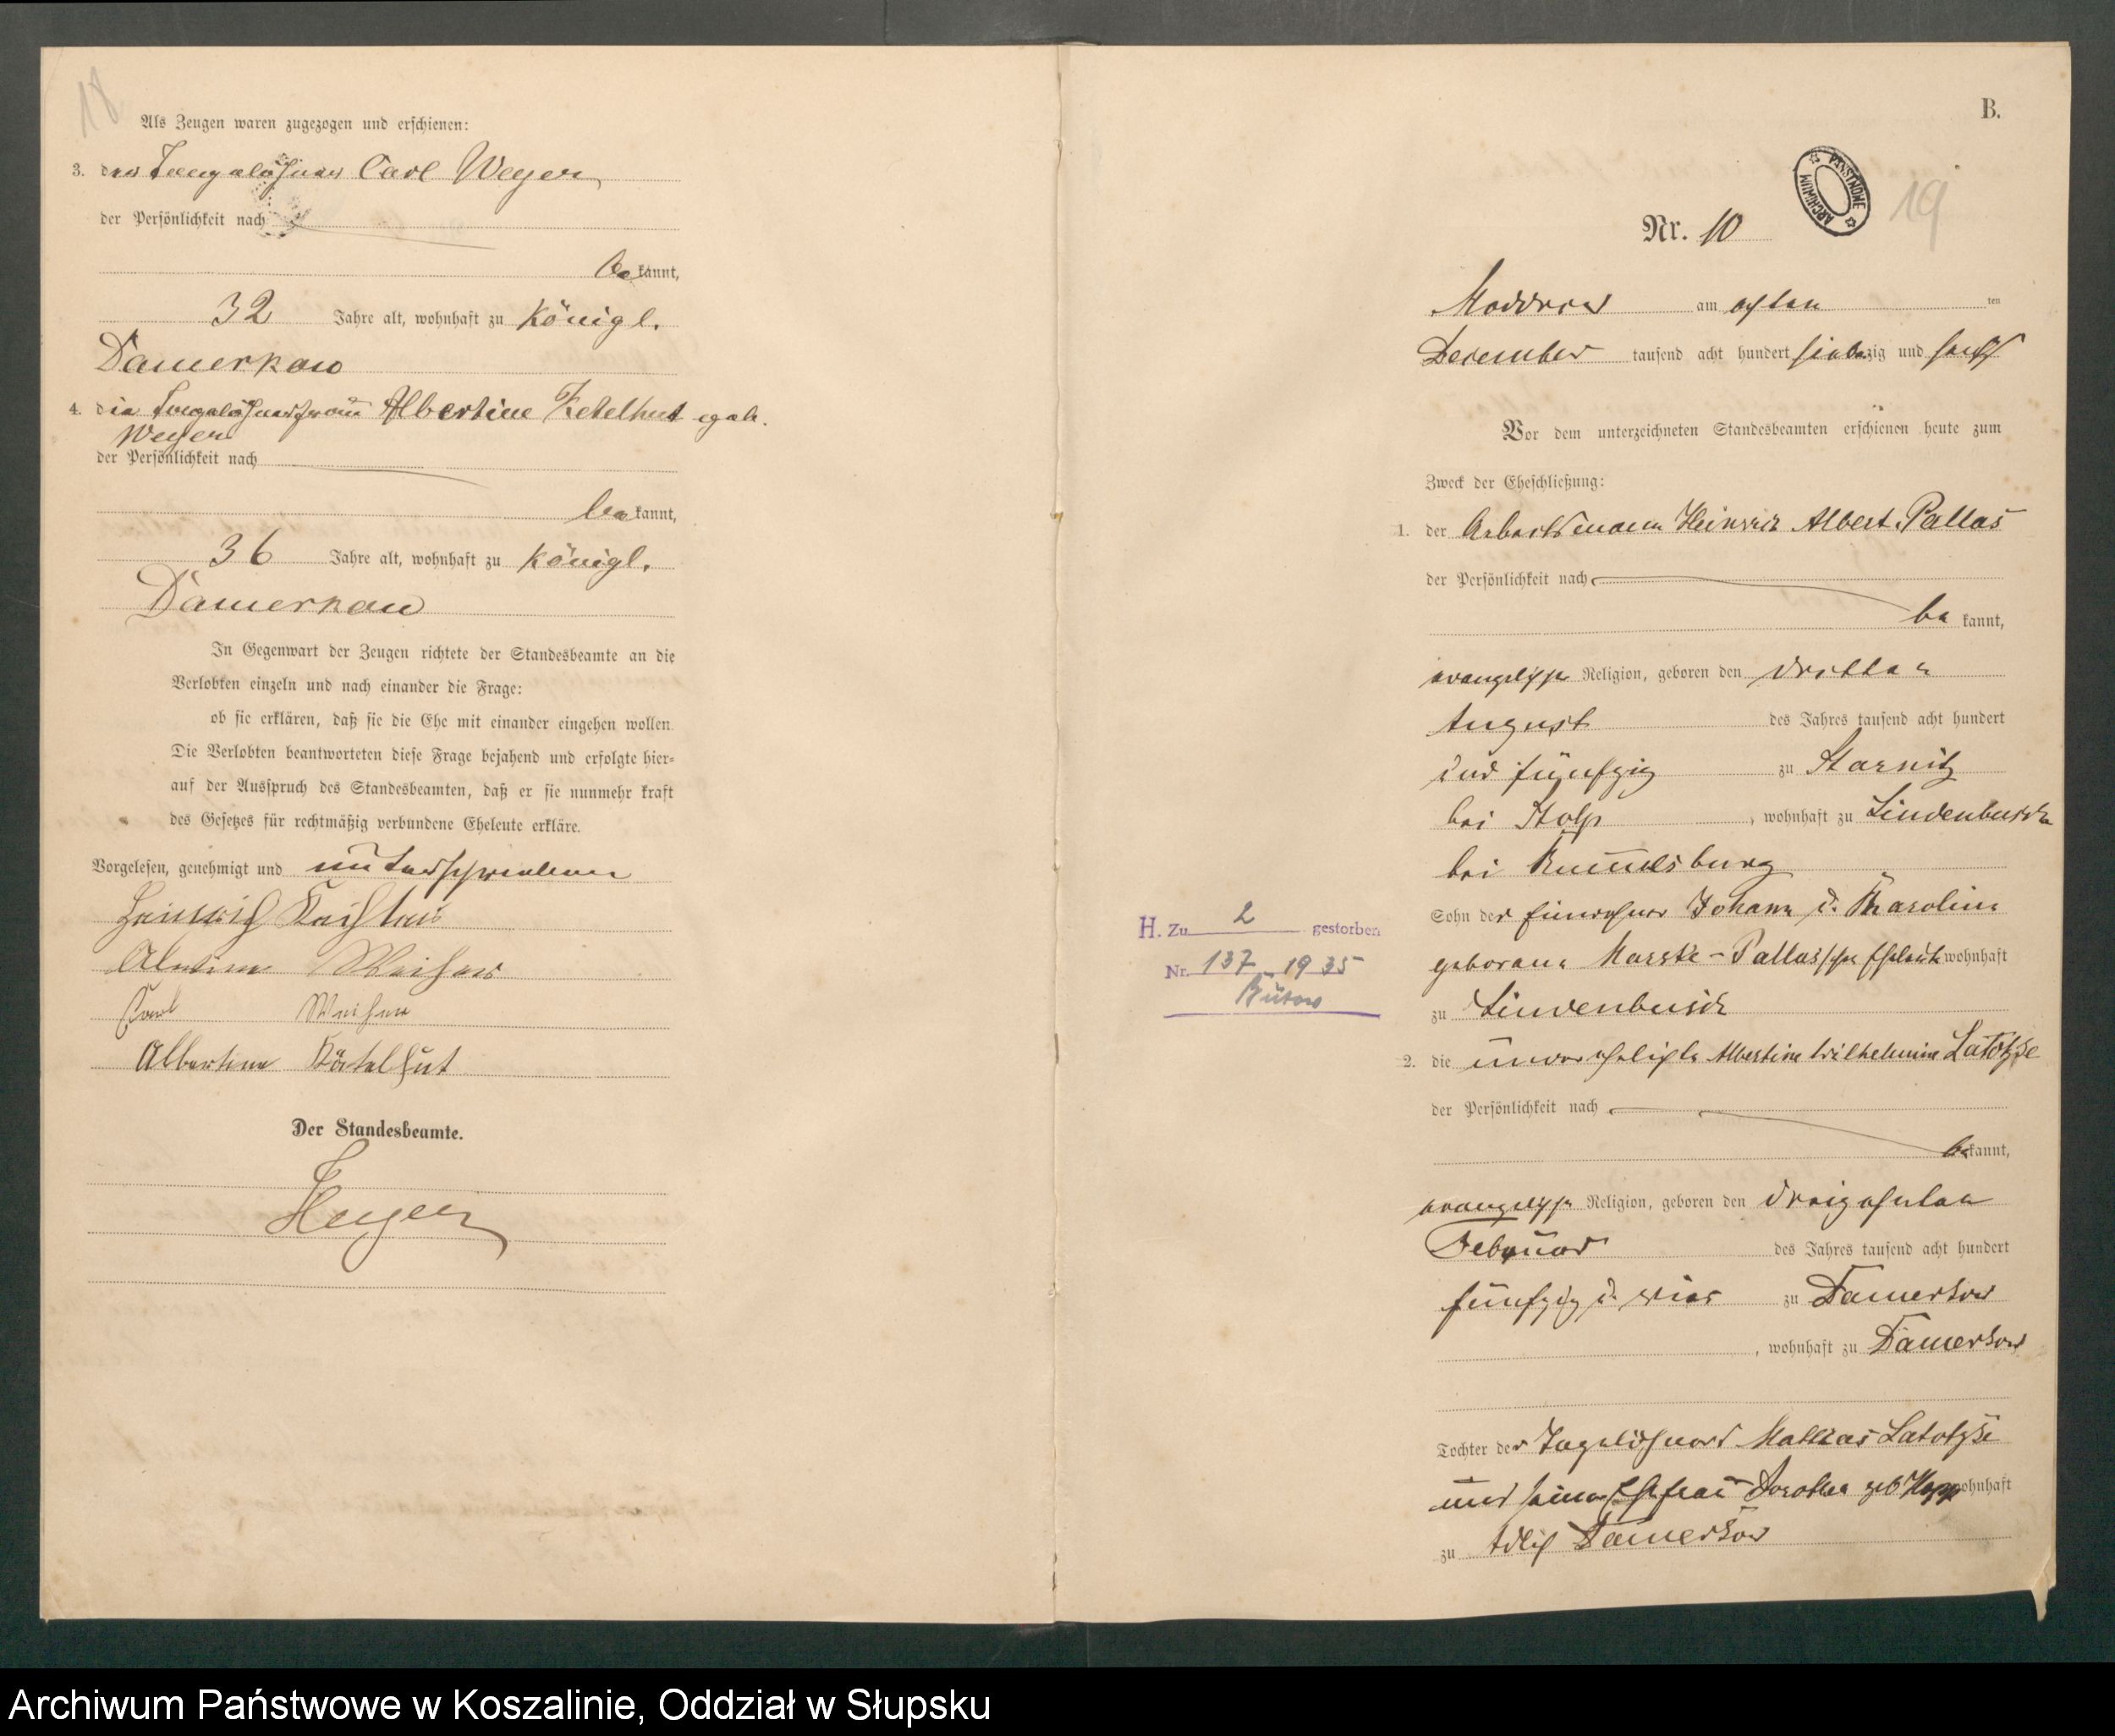 18
Als Zeugen waren zugezogen und erschienen:
3. der Tagelöhner Carl Weyer
der Persönlichkeit nach
bekannt,
32 Jahre alt, wohnhaft zu Königl.
Damerkow
4. die Tagelöhnerfrau Albertine Ketelhut geb.
Weyer
der Persönlichkeit nach
bekannt,
36 Jahre alt, wohnhaft zu Königl.
Damerkow
In Gegenwart der Zeugen richtete der Standesbeamte an die
Verlobten einzeln und nach einander die Frage:
ob sie erklären, daß sie die Ehe mit einander eingehen wollen.
Die Verlobten beantworteten diese Frage bejahend und erfolgte hier-
auf der Ausspruch des Standesbeamten, daß er sie nunmehr kraft
des Gesetzes für rechtmäßig verbundene Eheleute erkläre.
Vorgelesen, genehmigt und unterschrieben
Heinrich
Weiher
Carl Weiher
Albertine Kätelhut
Der Standesbeamte.
Heyer
B.
ARCHIWUM PAŃSTWOWE
19
Nr. 10
Moddrow am achten ten
December tausend acht hundert siebenzig und sechs
Vor dem unterzeichneten Standesbeamten erschienen heute zum
Zweck der Eheschließung:
1. der Arbeitsmann Heinrich Albert Pallas
der Persönlichkeit nach
bekannt,
evangelischer Religion, geboren den dritten
August des Jahres tausend acht hundert
und fünfzig zu Starnitz
bei Stolp, wohnhaft zu Lindenbusch
bei Rummelsburg
Sohn der Einwohner Johann u. Karoline
geborene Marske-Pallas'schen Eheleute wohnhaft
zu Lindenbusch
2. die unverehelichte Albertine Wilhelmine Latotzke
der Persönlichkeit nach
bekannt,
evangelischer Religion, geboren den dreizehnten
Februar des Jahres tausend acht hundert
fünfzig u. vier zu Damerkow
, wohnhaft zu Damerkow
Tochter des Tagelöhners Mathias Latotzke
und seiner Ehefrau Dorothea geb wohnhaft
zu Adlich Damerkow
H. Zu 2 gestorben
Nr. 137 1935
Bütow
Archiwum Państwowe w Koszalinie, Oddział w Słupsku